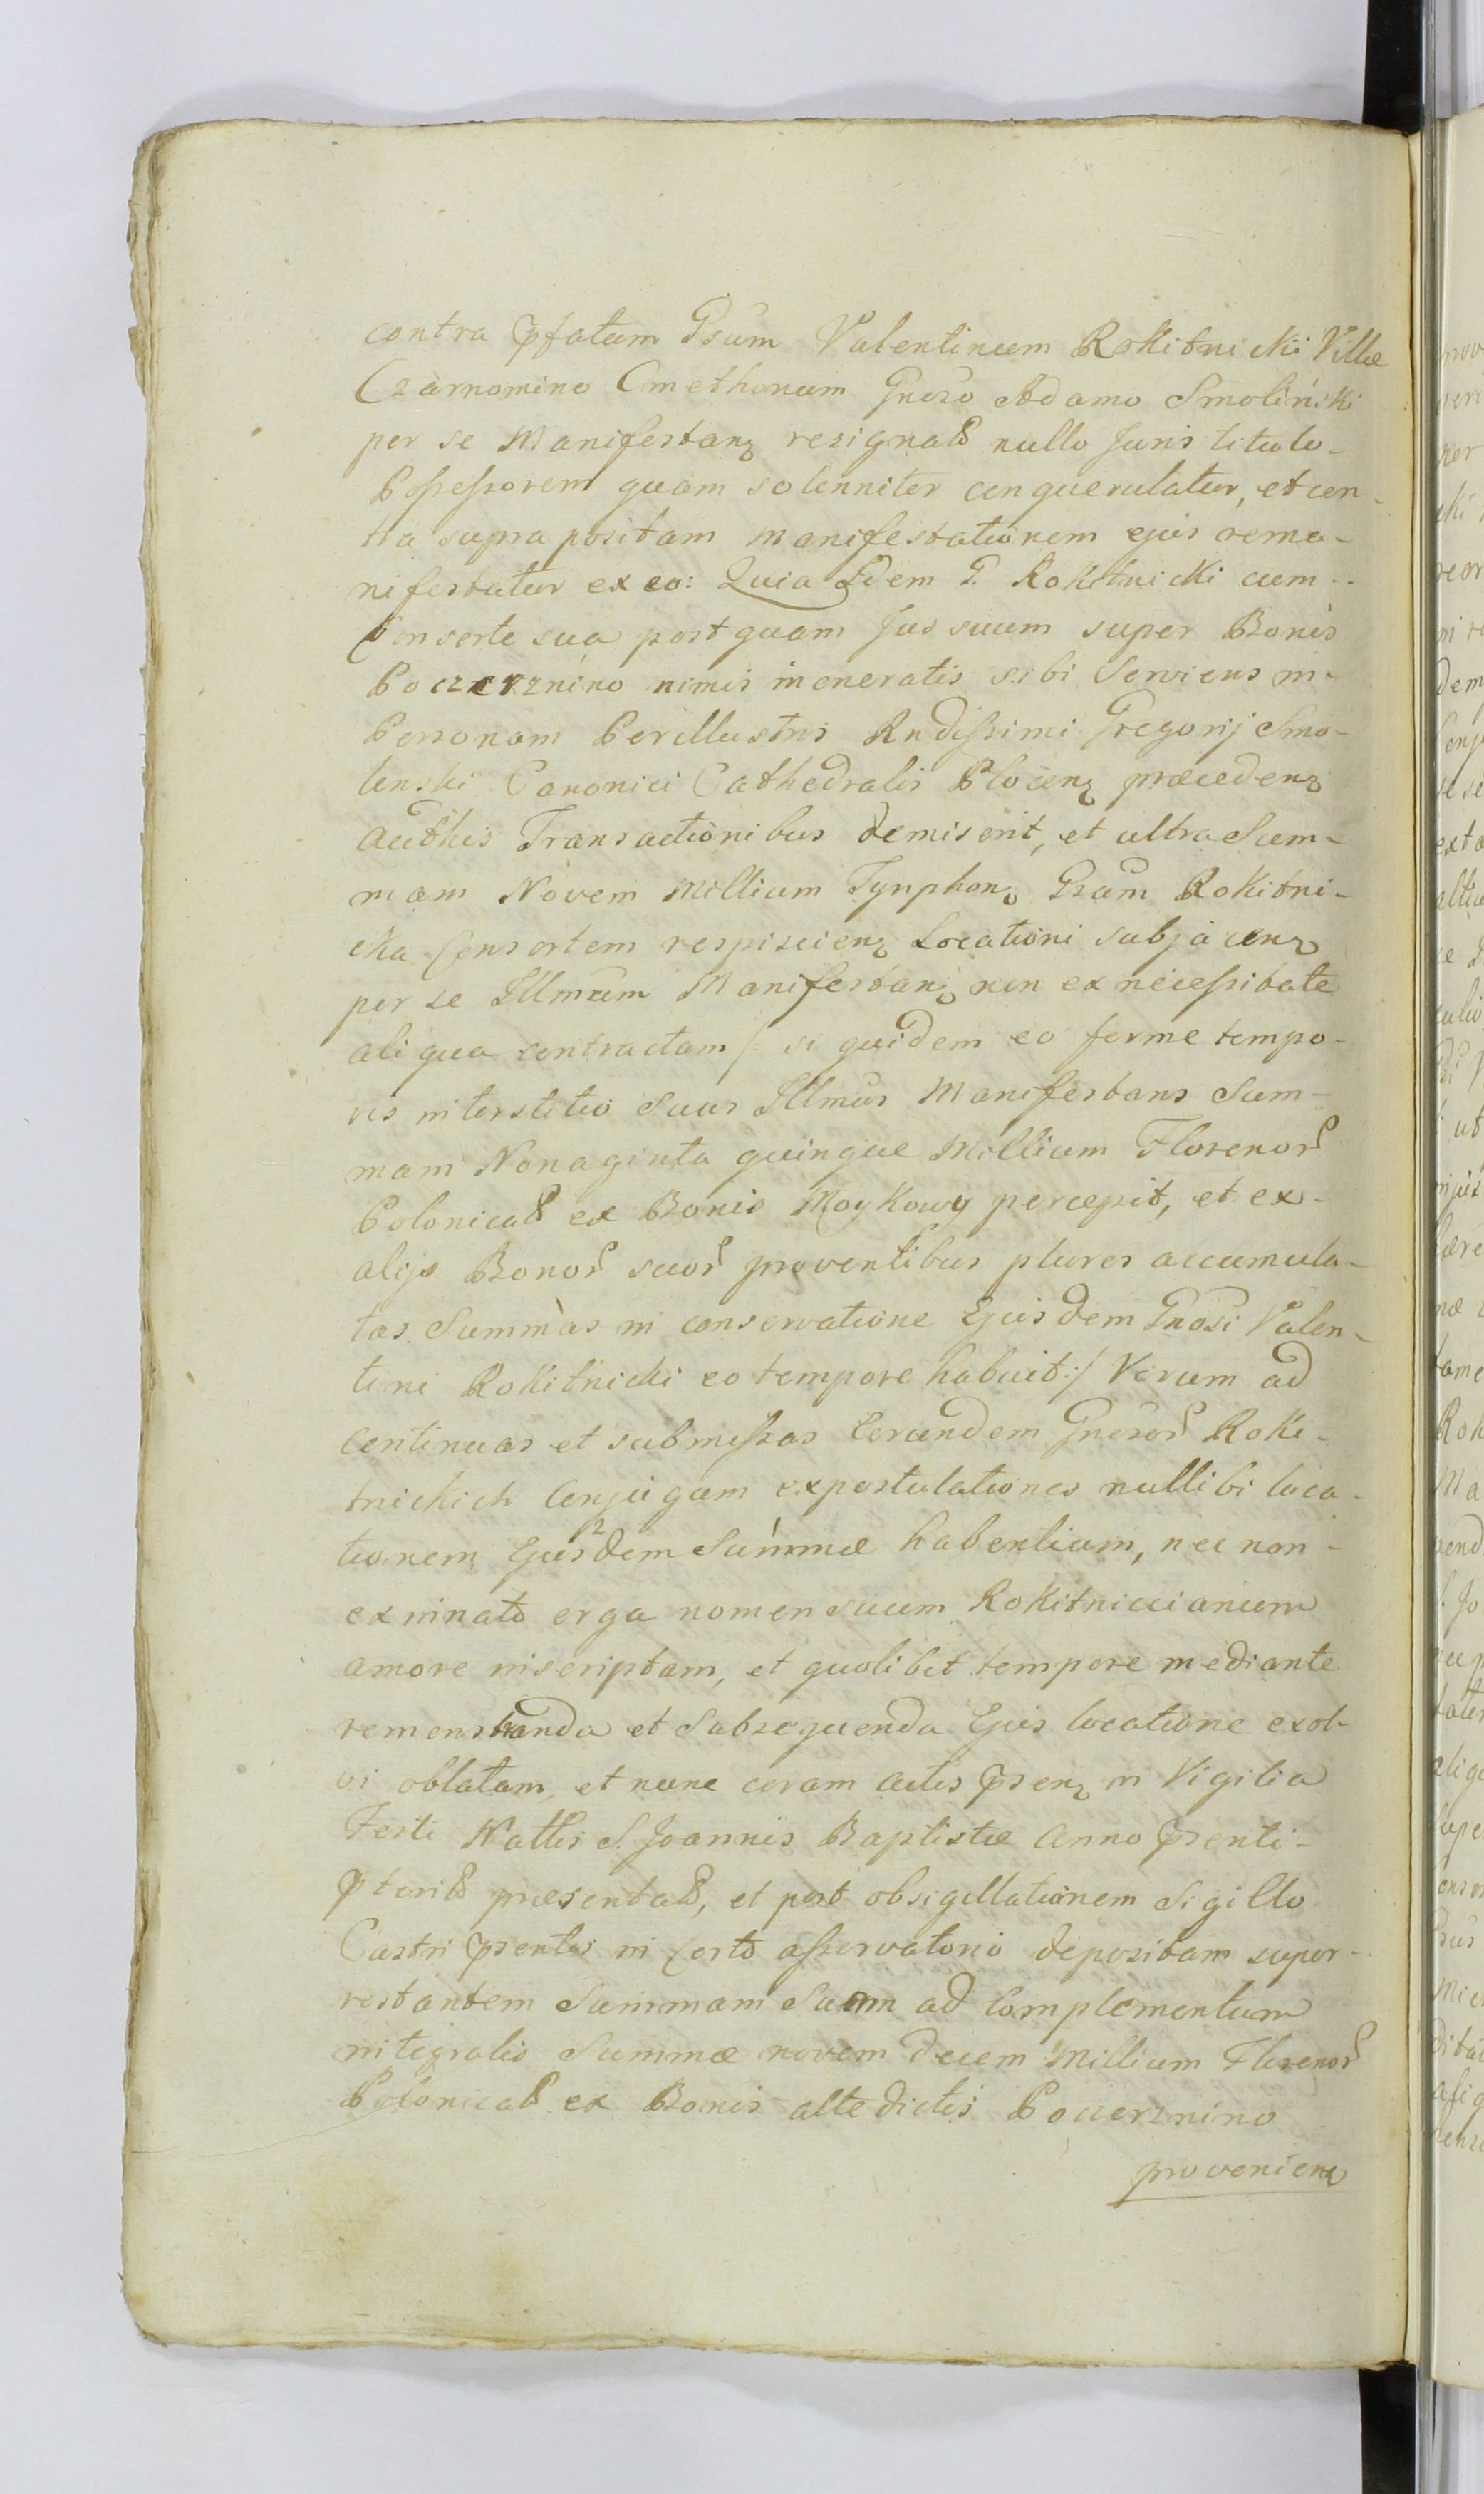 contra pfatum Gsum Valentinum Rokitnicki Villæ
Czarnomino Cmethonum Gneroso Adamo Smoliński
per se Manifestanz resignatȩ nullo Juris titulo
Possessorem quam solenniter conquerulatur, et con-
tra supra positam manifestationem ejus rema-
nifestatur ex eo: Quia Idem G. Rokitnicki cum
Consorte sua postquam Jus suum super Bonis
Poczerznino nimis ineneratis sibi serviens in
Personam Perillustris Rndissimi Gregorij Smo-
lenski Canonici Cathedralis Plocenz præcedenz
authcis Transactionibus demiserit, et ultra Sum-
mam Novem Millium Tynphonz Gsam Rokitni-
cka Consortem respicienz Locationi subjacenz
per se Illmum Manifestanz non ex necessitate
aliqua contractam /: si quidem eo ferme tempo-
ris interstitio Suus Illmus Manifestans Sum-
mam Nonaginta quinque Millium Florenor
Polonical ex Bonis Moykowy percepit, et ex
alijs Bonor suor proventibus plures accumula-
tas Summas in conservatione Ejusdem Gnosi Valen-
tini Rokitnicki eo tempore habuit :/ Verum ad
continuas et submissas Eorundem Gneror Roki-
tnickich Conjugum expostulationes nullibi loca-
tionem Ejusdem Summæ habentium, nec non
ex innato erga nomen suum Rokitniccianum
amore inscriptam, et quolibet tempore mediante
remonstranda et Subsequenda Ejus locatione exol-
vi oblatam, et nunc coram actis psenz in Vigilia
Festi Natlis S. Joannis Baptistæ Anno psenti
pterito præsental, et post obsigillationem Sigillo
Castri psentis in certo asservatorio depositam super-
restantem Summam Suam ad Complementum
integralis Summæ novem decem Millium Florenor
Polonical ex Bonis alte dictis Poczerznino
provenienz